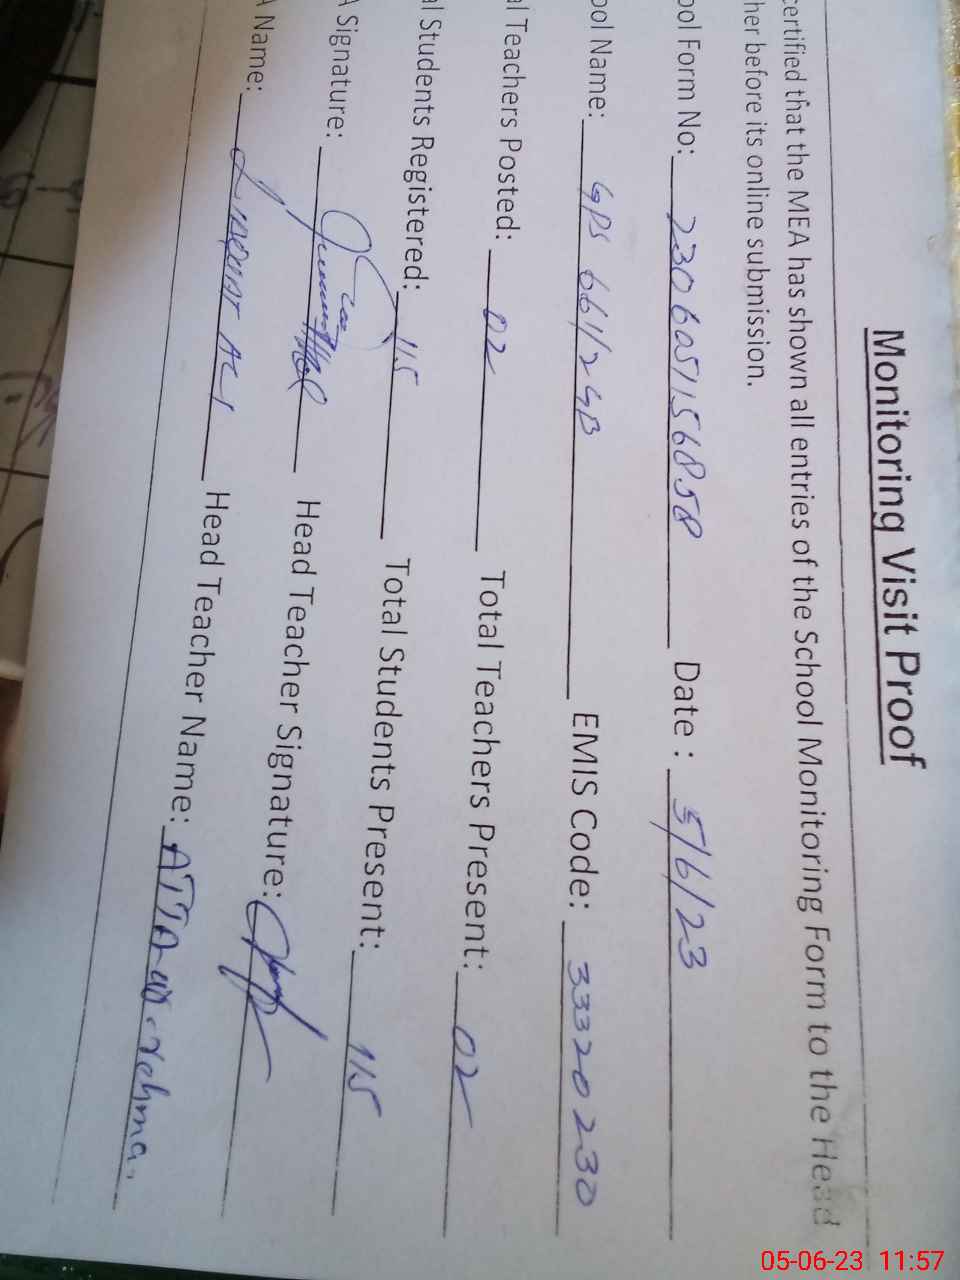 Monitoring Visit Proof
certified that the MEA has shown all entries of the School Monitoring Form to the Head
her before its online submission.
ool Form No: 2306051156858 Date : 5/6/23
ool Name: GPS 661/2 GB EMIS Code: 33320230
al Teachers Posted: 02 Total Teachers Present: 02
al Students Registered: 115 Total Students Present: 115
A Signature: Head Teacher Signature:
A Name: LIAQUAT ALI Head Teacher Name: ATTA-ur-rehma.
05-06-23 11:57